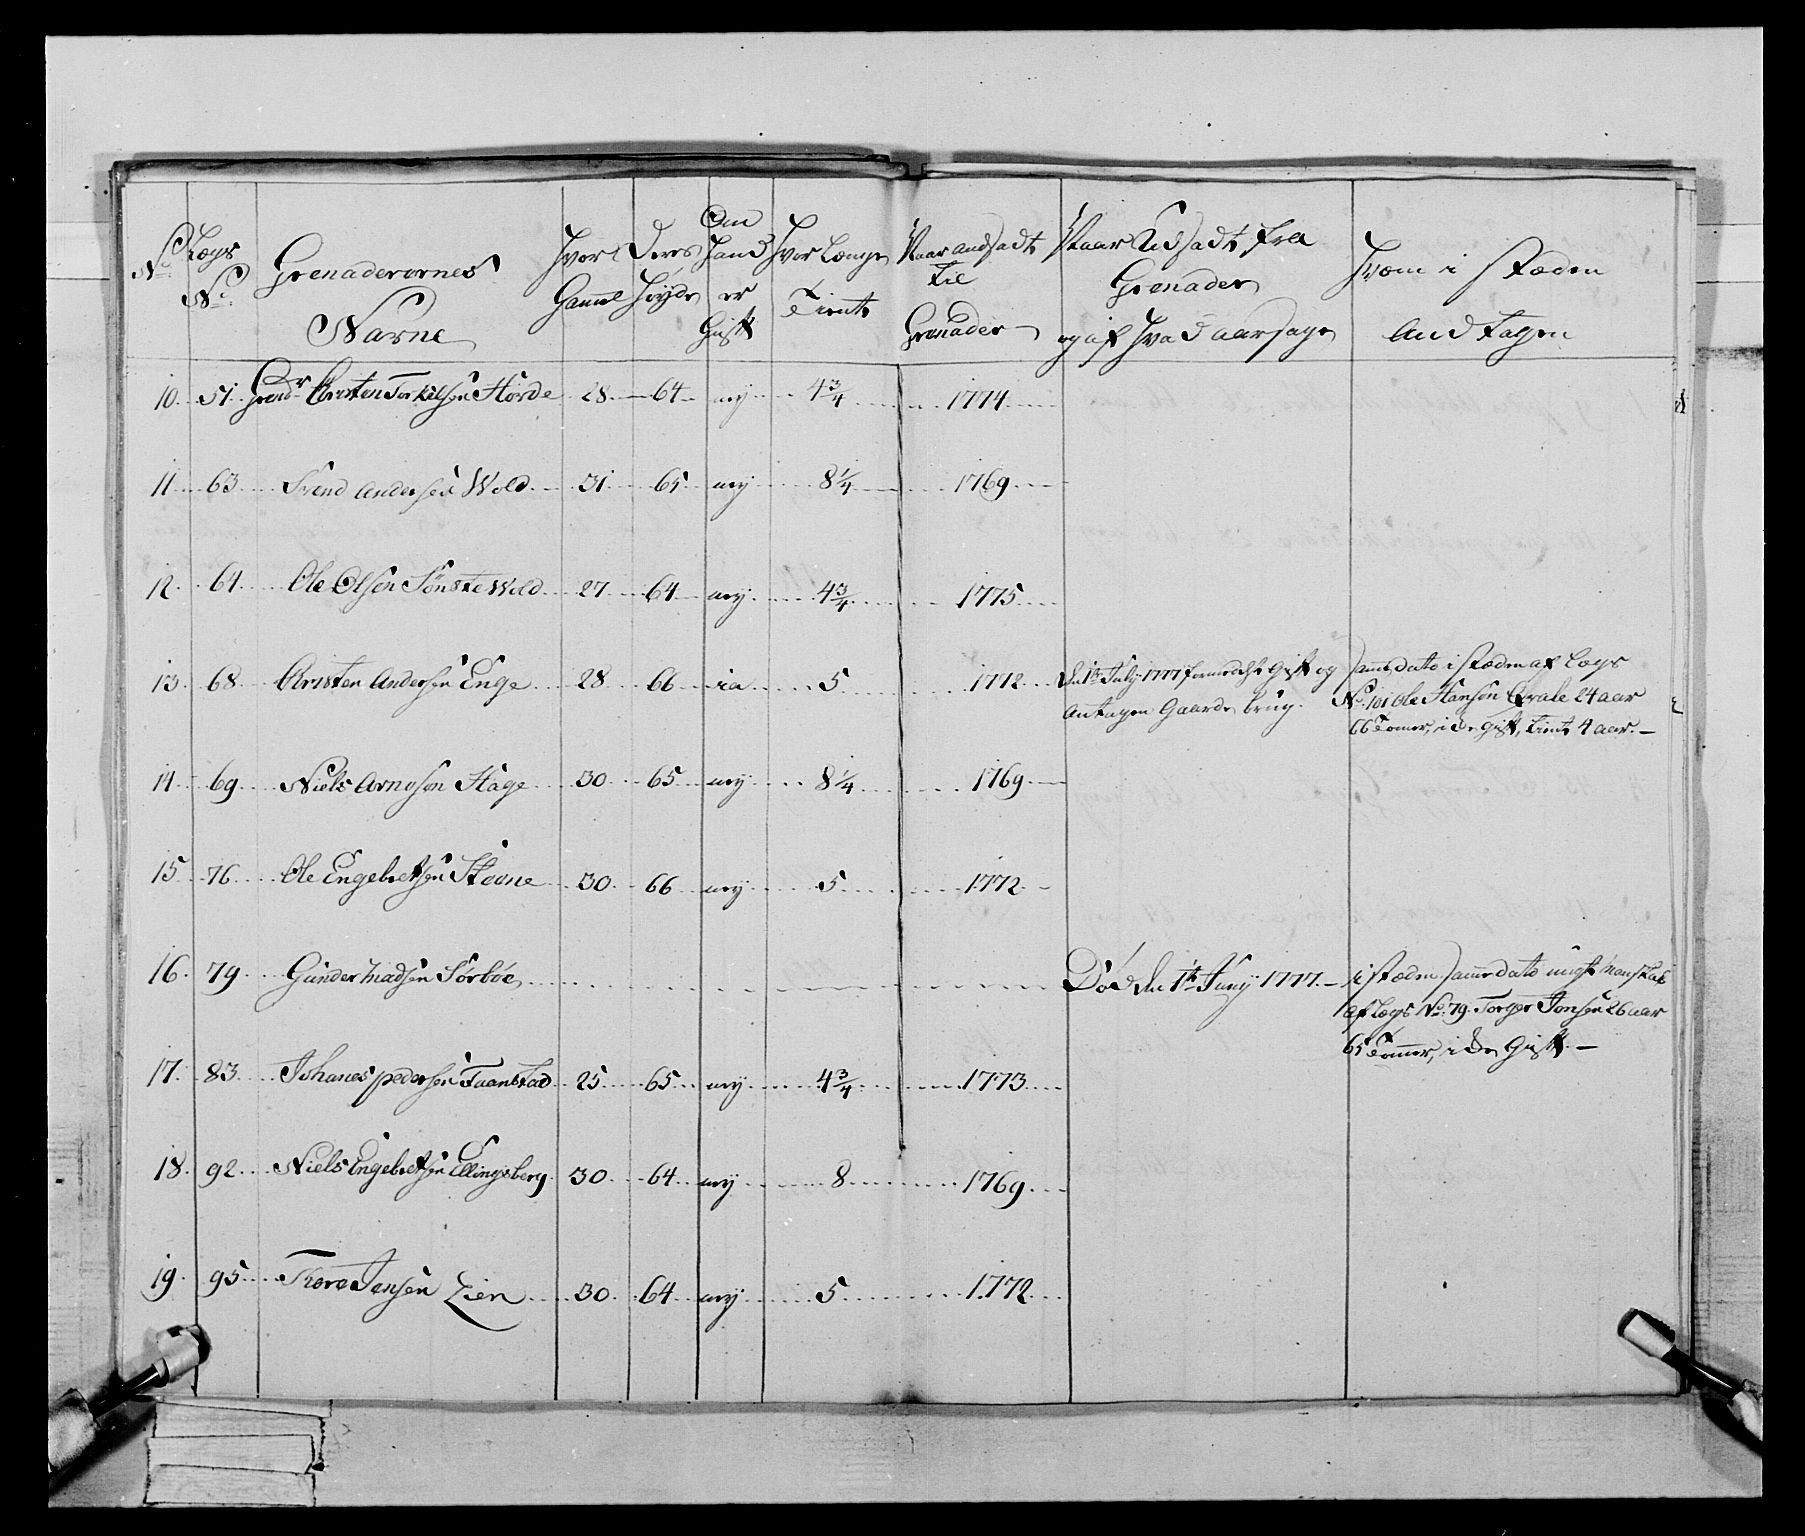 No Lægs No Grenaderernes Nafne Hvor Gamel Deres Høyde Om Hand er Gift Hvor Længe Tient Naar andsadt til Grenader Naar Udsadt fra Grenader og af Hvad aarsage Hvem i stæden Andtagen
10 51 Grendr Christen Torkelsen Hørde 28 64 ney 4 3/4 1774
11 63 Svend Andersen Wold 31 65 ney 8 1/4 1769
12 64 Ole Olsen Sønste Wold 27 64 ney 4 3/4 1775
13 68 Christen Andersen Enge 28 66 ia 5 1772 den 1te July 1777 formedelst Gift og
Antagen Gaards brug.
Samme dato i stæden af Lægs
No 101 Ole Hansøn Qvale 24 aar
66 Tomer, icke gift, tient 4 aar.
14 69 Niels Arnesøn Hage 30 65 ney 8 1/4 1769
15 76 Ole Engebretsen Støvne 30 66 ney 5 1772
16 79 Gunder Madsen Sørbøe Død den 1te Juny 1777.
i stæden samme dato ungt Manskab
af Lægs No 79. Torger Jonsen 26 aar
65 Tommer, icke Gift.
17 83 Johanes pedersen Taanstad 25 65 ney 4 3/4 1773
18 92 Niels Engebretsen Ellingsberg 30 64 ney 8 1769
19 95 Thore Jensen Lien 30 64 ney 5 1772